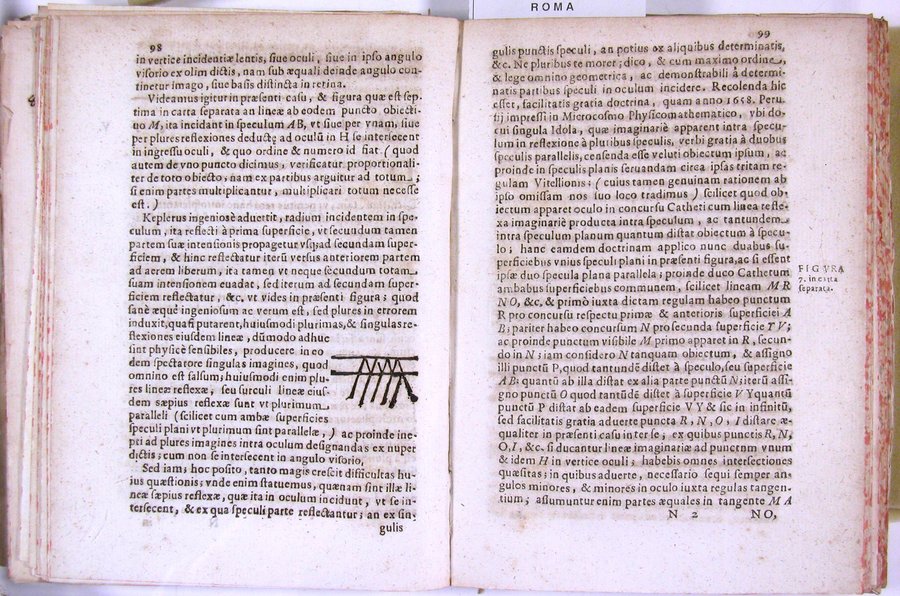 ROMA
98
in vertice incidentiæ lentis, siue oculi, siue in ipso angulo
visorio ex olim dictis, nam sub æquali deinde angulo con-
tinetur imago, siue basis distincta in retina.
Videamus igitur in præsenti casu, & figura quæ est sep-
tima in carta separata an lineæ ab eodem puncto obiecti-
uo M, ita incidant in speculum AB, vt siue per vnam, siue
per plures reflexiones deductę ad oculū in H se intersecent
in ingressu oculi, & quo ordine & numero id fiat. (quod
autem de vno puncto dicimus, verificatur proportionali-
ter de toto obiecto, nam ex partibus arguitur ad totum;
si enim partes multiplicantur, multiplicari totum necesse
est.)
Keplerus ingeniosè aduertit, radium incidentem in spe-
culum, ita reflecti à prima superficie, vt secundum tamen
partem suæ intensionis propagetur vsq; ad secundam super-
ficiem, & hinc reflectatur iterū versus anteriorem partem
ad aerem liberum, ita tamen vt neque secundum totam
suam intensionem euadat, sed iterum ad secundam super-
ficiem reflectatur, &c. vt vides in præsenti figura; quod
sanè æquè ingeniosum ac verum est, sed plures in errorem
induxit, quasi putarent, huiusmodi plurimas, & singulas re-
flexiones eiusdem lineæ, dūmodo adhuc
sint physicè sensibiles, producere in eo
dem spectatore singulas imagines, quod
omnino est falsum; huiusmodi enim plu-
res lineæ reflexæ, seu surculi lineæ eius-
dem sæpius reflexæ sunt vt plurimum
paralleli (scilicet cum ambæ superficies
speculi plani vt plurimum sint parallelæ,) ac proinde ine-
pti ad plures imagines intra oculum designandas ex nuper
dictis; cum non se intersecent in angulo visorio,
Sed iam; hoc posito, tanto magis crescit difficultas hu-
ius quæstionis; vnde enim statuemus, quænam sint illæ li-
neæ sæpius reflexæ, quæ ita in oculum incidunt, vt se in-
tersecent, & ex qua speculi parte reflectantur; an ex sin-
gulis
99
gulis punctis speculi, an potius ex aliquibus determinatis,
&c. Ne pluribus te moret; dico, & cum maximo ordine,
& lege omnino geometrica, ac demonstrabili à determi-
natis partibus speculi in oculum incidere. Recolenda hic
esset, facilitatis gratia doctrina, quam anno 1658. Peru-
sij impressi in Microcosmo Physicomathematico, vbi do-
cui singula Idola, quæ imaginariè apparent intra specu-
lum in reflexione à pluribus speculis, verbi gratia à duobus
speculis parallelis, censenda esse veluti obiectum ipsum, ac
proinde in speculis planis seruandam circa ipsas tritam re-
gulam Vitellionis; (cuius tamen genuinam rationem ab
ipso omissam nos suo loco tradimus) scilicet quod ob-
iectum apparet oculo in concursu Catheti cum linea refle-
xa imaginariè producta intra speculum, ac tantundem
intra speculum planum quantum distat obiectum à specu-
lo; hanc eamdem doctrinam applico nunc duabus su-
perficiebus vnius speculi plani in præsenti figura, ac si essent
ipsæ duo specula plana parallela; proinde duco Cathetum
ambabus superficiebus communem, scilicet lineam M R
NO, &c. & primò iuxta dictam regulam habeo punctum
R pro concursu respectu primæ & anterioris superficiei A
B; pariter habeo concursum N pro secunda superficie TV;
ac proinde punctum visibile M primo apparet in R, secun-
do in N; iam considero N tanquam obiectum, & assigno
illi punctū P, quod tantundē distet à speculo, seu superficie
AB. quantū ab illa distat ex alia parte punctū N; iterū assi-
gno punctū O quod tantūdē distet à superficie VY quantū
punctū P distat ab eadem superficie VY & sic in infinitū,
sed facilitatis gratia aduerte puncta R, N, O, I distare æ-
qualiter in præsenti casu inter se; ex quibus punctis R, N,
O, I, &c. si ducantur lineæ imaginariæ ad punctum vnum
& idem H in vertice oculi; habebis omnes intersectiones
quæsitas; in quibus aduerte, necessario sequi semper an-
gulos minores, & minores in oculo iuxta regulas tangen-
tium; assumuntur enim partes æquales in tangente M A
N 2
NO,
FIGVRA
7. in carta
separata.